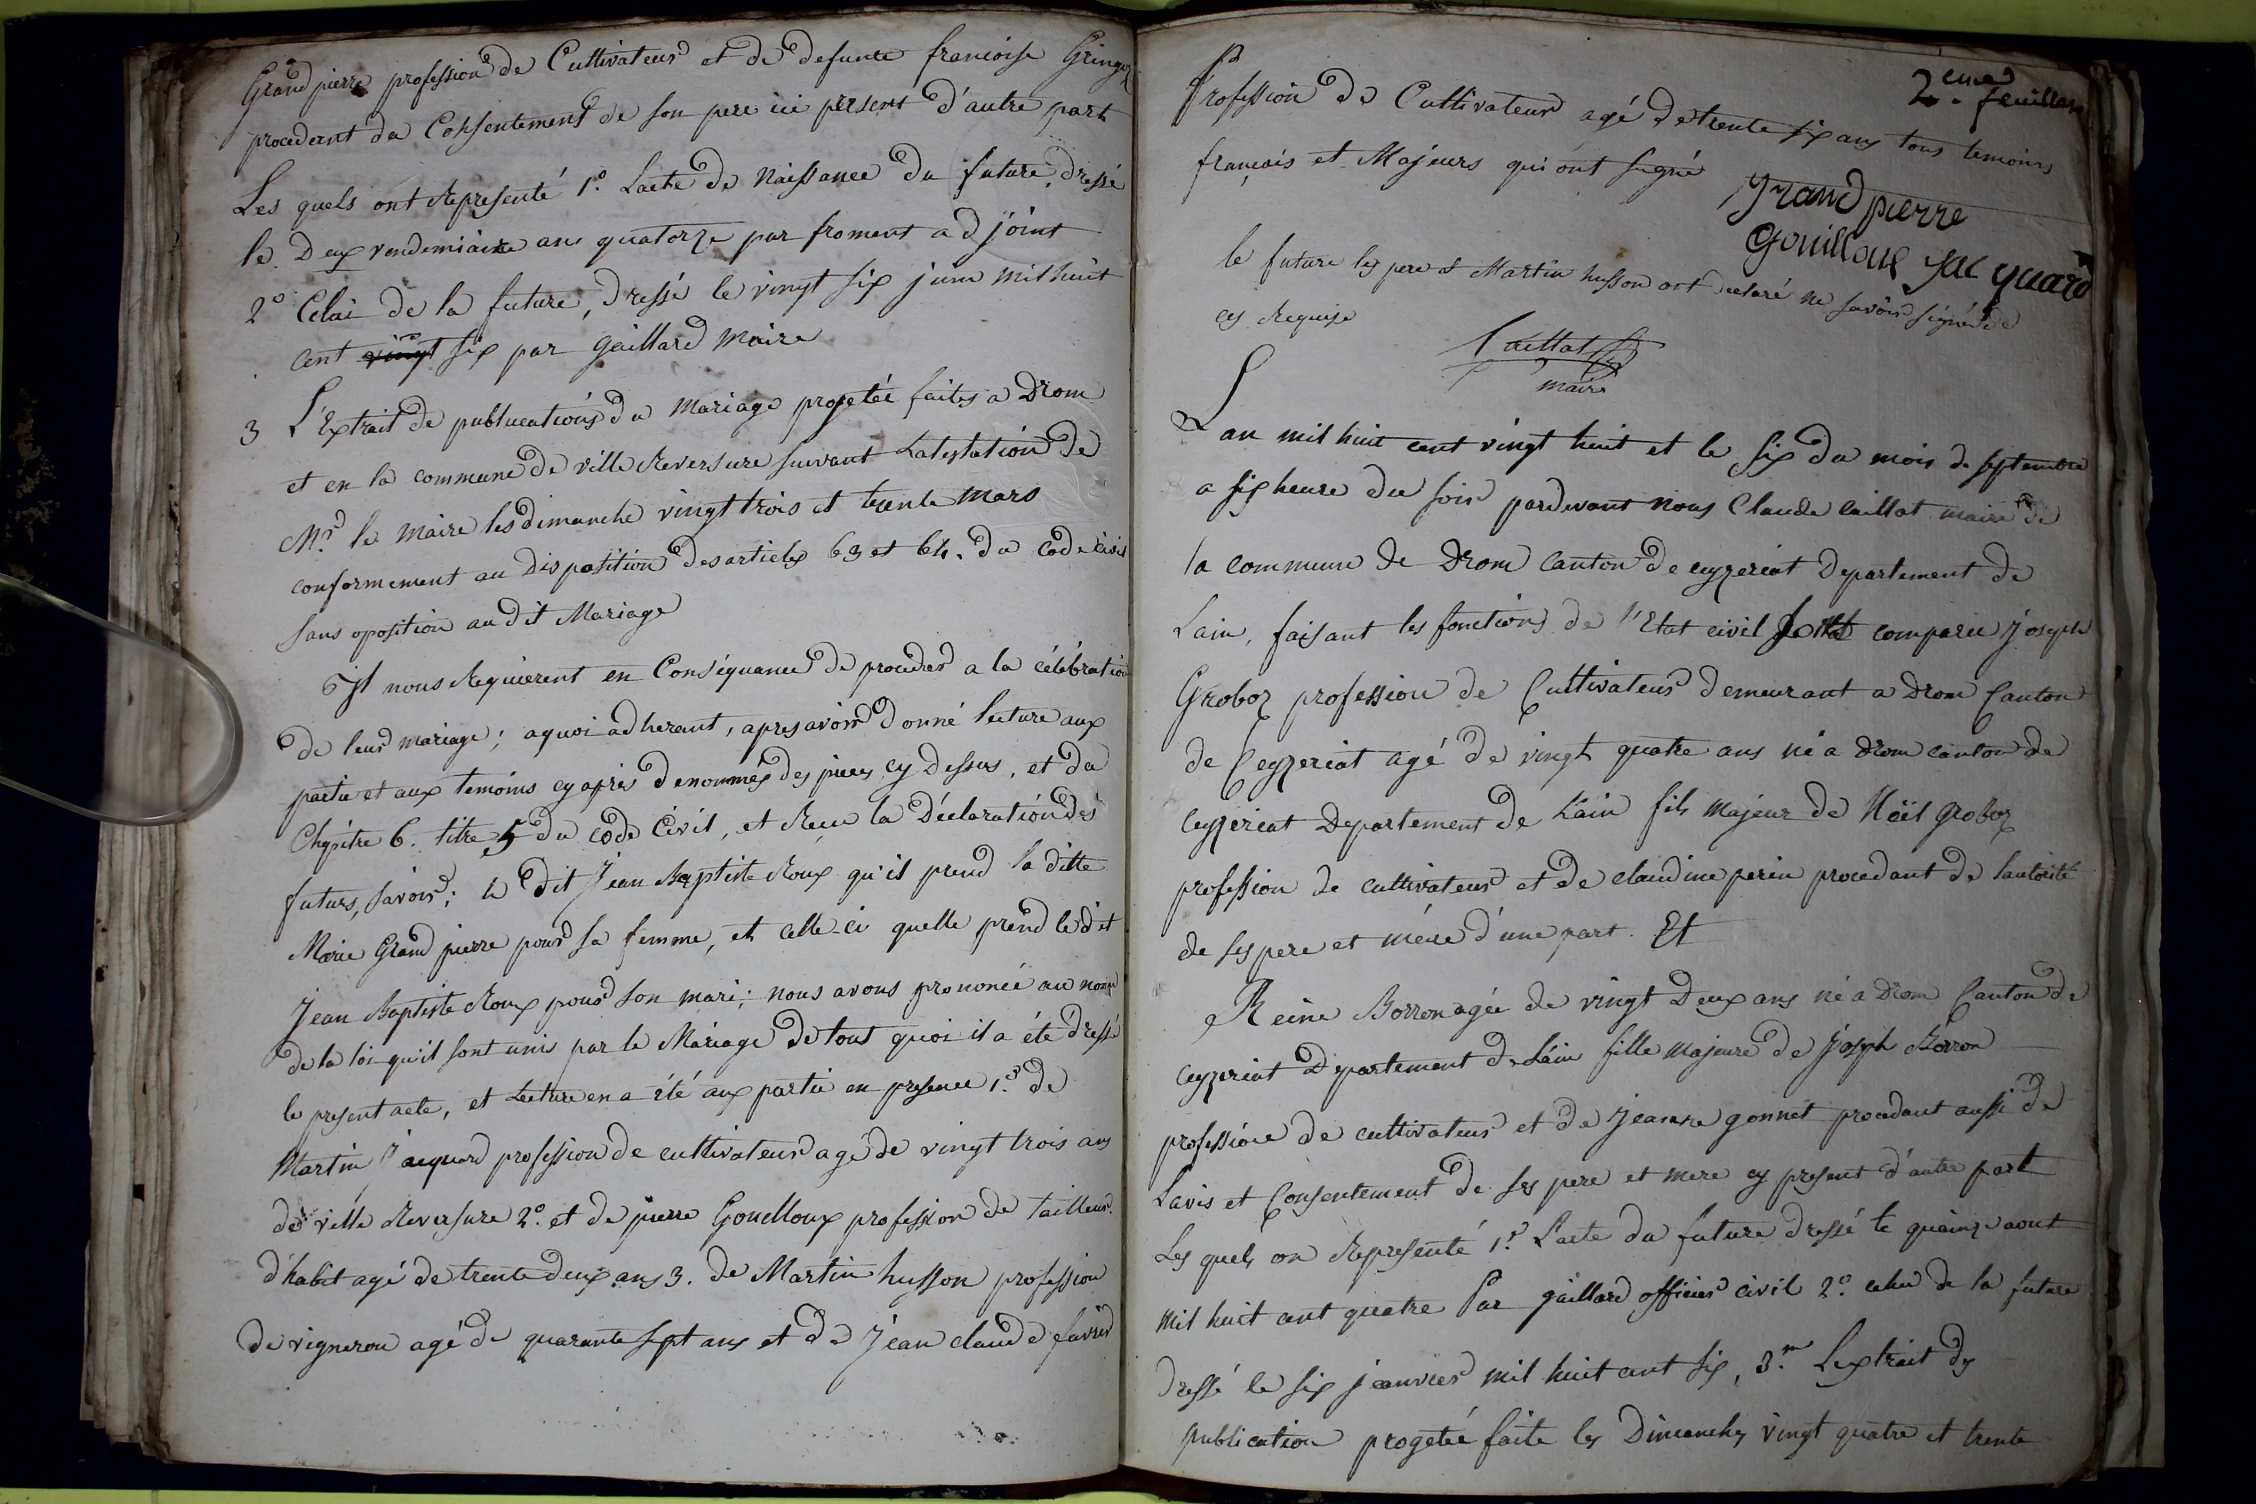 Grand pierre profession de Cultivateur et de defunte francoise Gringoz
procedent du Consentement de son pere ici present d'autre part
Les quels ont Representé 1º. Lacte de Naissance du future, dressé
le Deux vendemiaire ans quatorze par froment adjoint
2º Celui de la future, dressé le vingt six juin mil huit
cent vingt six par gaillard Maire
3 L'Extrait de publications du Mariage projetée faites a Drom
et en la commune de ville Reversure suivant Latestation de
Mr. le Maire les dimanche vingt trois et trente Mars
conformement au Disposition des articles 63 et 64. du code civil
sans oposition au dit Mariage
Il nous Requierent en Conséquance de proceder a la célébration
de leur mariage; a quoi adherant, apres avoir donné lecture aux
partie et aux temoins cy après denommés des pieces cy dessus, et du
Chapitre 6. titre 5 du Code Civil, et Recu la Déclaration des
futurs, savoir; le dit Jean Baptiste Roux qu'il prend la ditte
Marie Grand pierre pour sa femme, et celle ci quelle prend le dit
Jean Baptiste Roux pour son mari; nous avons prononcé au nom
de la loi qu'il sont unis par le Mariage de tout quoi il a été dressé
le present acte, et Lecture en a été aux partie en presence 1.º de
Martin Jacquard profession de cultivateur agé de vingt trois ans
de ville Reversure 2º. et de pierre Gouilloux profession de tailleur
d'habit agé de trente deux ans 3. de Martin husson profession
de vigneron agé de quarante sept ans et de Jean claude favier
2.eme feuillet
Profession de Cultivateur agé de trente six ans tous temoins
français et Majeurs qui ont signé
Grand pierre
Gouilloux Jacquard
le future les pere et Martin husson ont declaré ne savoir signer de
ces Requise
Caillat
maire
Lan mil huit cent vingt huit et le six du mois de septembre
a six heure du soir pardevant Nous Claude Caillat maire de
la commune de Drom Canton de ceyzeriat Departement de
Lain, faisant les fonctions de l'Etat civil Sont comparu Joseph
Groboz profession de Cultivateur demeurant a Drom Canton
de Ceyzeriat agé de vingt quatre ans né a Drom canton de
Ceyzeriat Departement de Lain fils Majeur de Noël groboz
profession de cultivateur et de claudine perin procedant de lautorité
de ses pere et mére d'une part. Et
Reine Borron agée de vingt Deux ans né a Drom Canton de
ceyzeriat Departement de Lain fille Majeure de Joseph Borron
profession de cultivateur et de jeanne gonnet procedant aussi de
Lavis et Consentement de ses pere et mere cy present d'autre part
Les quels on Representé 1.º Lacte du future dressé le quainze aout
Mil huit cent quatre Par gaillard officier civil 2º. celui de la future
dressé le six janvier mil huit cent six, 3.me Lextrait des
publication progetée faite les Dimanches vingt quatre et trente